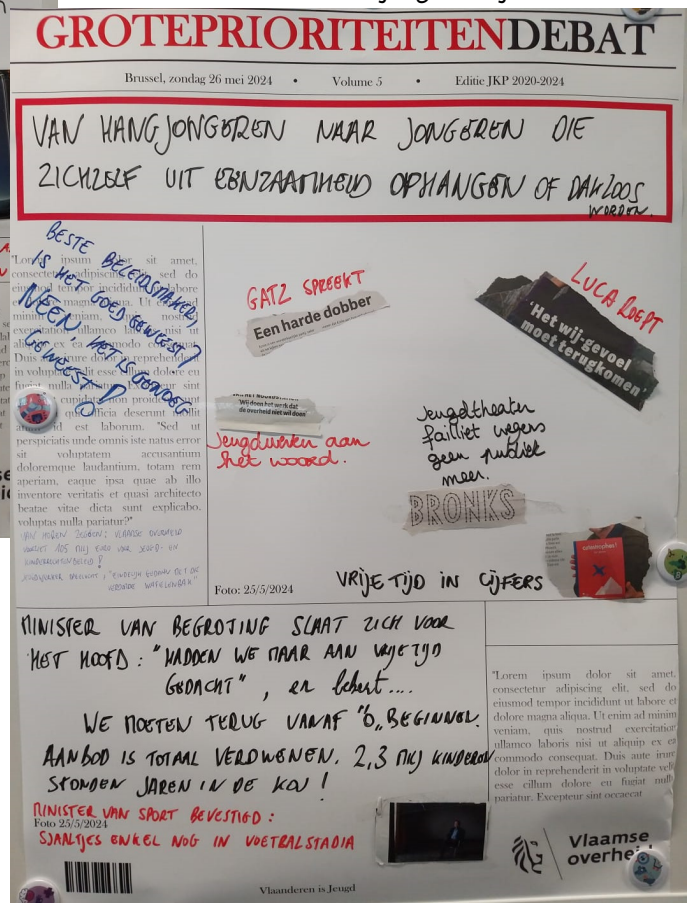 GROTEPRIORITEITENDEBAT
Brussel, zondag 26 mei 2024 • Volume 5 • Editie JKP 2020-2024
VAN HANGJONGEREN NAAR JONGEREN DIE
ZICHZELF UIT EENZAAMHEID OPHANGEN OF DAKLOOS
WORDEN.
BESTE BELEIDSMAKERS,
IS HET GOED GEWEEST?
NEEN, HET IS GENOEG
GEWEEST!
"Lorem ipsum dolor sit amet,
consectetur adipiscing elit, sed do
eiusmod tempor incididunt ut labore
et dolore magna aliqua. Ut enim ad
minim veniam, quis nostrud
exercitation ullamco laboris nisi ut
aliquip ex ea commodo consequat.
Duis aute irure dolor in reprehenderit
in voluptate velit esse cillum dolore eu
fugiat nulla pariatur. Excepteur sint
cupidatat non proident,
officia deserunt mollit
id est laborum. "Sed ut
perspiciatis unde omnis iste natus error
sit voluptatem accusantium
doloremque laudantium, totam rem
aperiam, eaque ipsa quae ab illo
inventore veritatis et quasi architecto
beatae vitae dicta sunt explicabo.
voluptas nulla pariatur?"
VAN HOREN ZEGGEN: VLAAMSE OVERHEID
105 MLJ EURO VOOR JEUGD- EN
KINDERRECHTENBELEID!
"EINDELIJK GEDAAN MET DE
WAFELENBAK"
GATZ SPREEKT
Een harde dobber
LUCA ROEPT
'Het wij-gevoel
moet terugkomen'
Wij doen het werk dat
de overheid niet wil doen
Jeugdwerk aan
het woord.
Jeugdtheater
failliet wegens
geen publiek
meer.
BRONKS
Foto: 25/5/2024
VRIJE TIJD IN CIJFERS
MINISTER VAN BEGROTING SLAAT ZICH VOOR
HET HOOFD: "HADDEN WE MAAR AAN VRIJE TIJD
GEDACHT", en beheert....
WE MOETEN TERUG VANAF "0" BEGINNEN.
AANBOD IS TOTAAL VERDWENEN. 2,3 MLJ KINDEREN
STONDEN JAREN IN DE KOU!
MINISTER VAN SPORT BEVESTIGD:
Foto 25/5/2024
SJAALTJES ENKEL NOG IN VOETBALSTADIA
"Lorem ipsum dolor sit amet,
consectetur adipiscing elit, sed do
eiusmod tempor incididunt ut labore et
dolore magna aliqua. Ut enim ad minim
veniam, quis nostrud exercitation
ullamco laboris nisi ut aliquip ex ea
commodo consequat. Duis aute irure
dolor in reprehenderit in voluptate velit
esse cillum dolore eu fugiat nulla
pariatur. Excepteur sint occaecat
Vlaamse
overheid
Vlaanderen is Jeugd